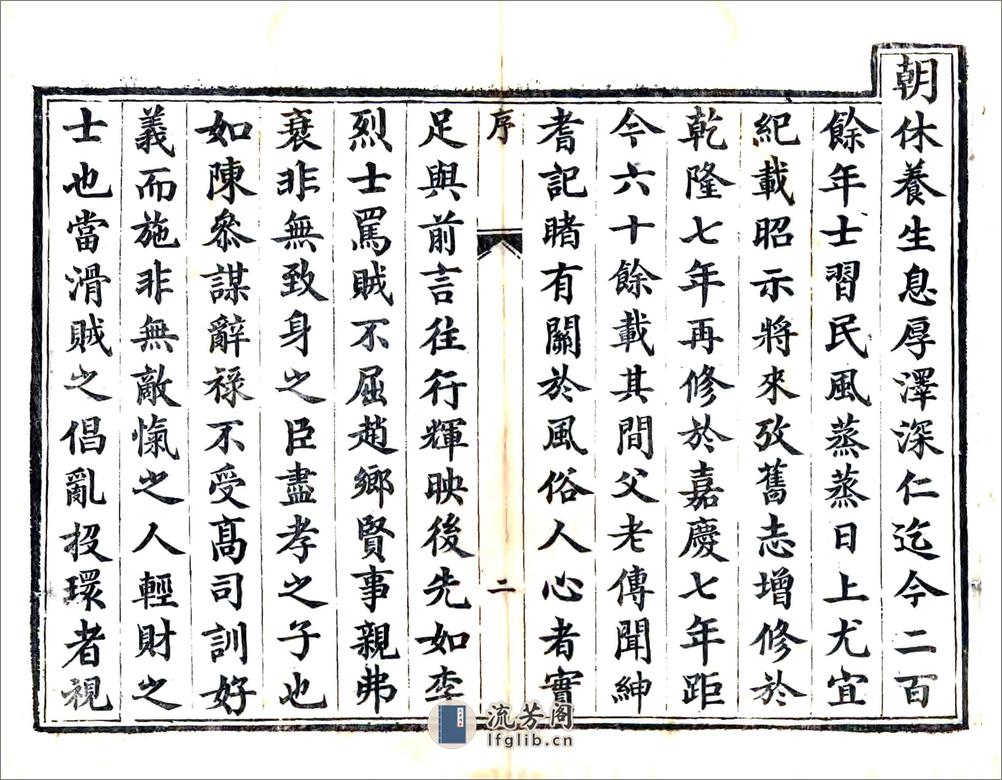 朝休養生息厚澤深仁迄今二百
餘年士習民風蒸蒸日上尤宜
紀載昭示將來攷舊志增修於
乾隆七年再修於嘉慶七年距
今六十餘載其間父老傳聞紳
耆記睹有關於風俗人心者實
序
二
足與前言往行輝映後先如李
烈士罵賊不屈趙鄉賢事親弗
衰非無致身之臣盡孝之子也
如陳叅謀辭祿不受髙司訓好
義而施非無敵愾之人輕財之
士也當滑賊之倡亂投環者視
流芳阁
lfglib.cn